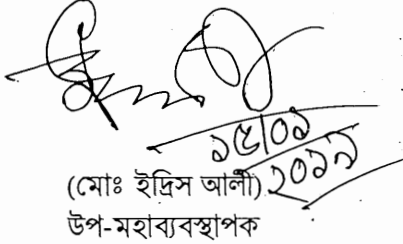 ১৫/০১
২০১৯
(মোঃ ইদ্রিস আলী)
উপ-মহাব্যবস্থাপক